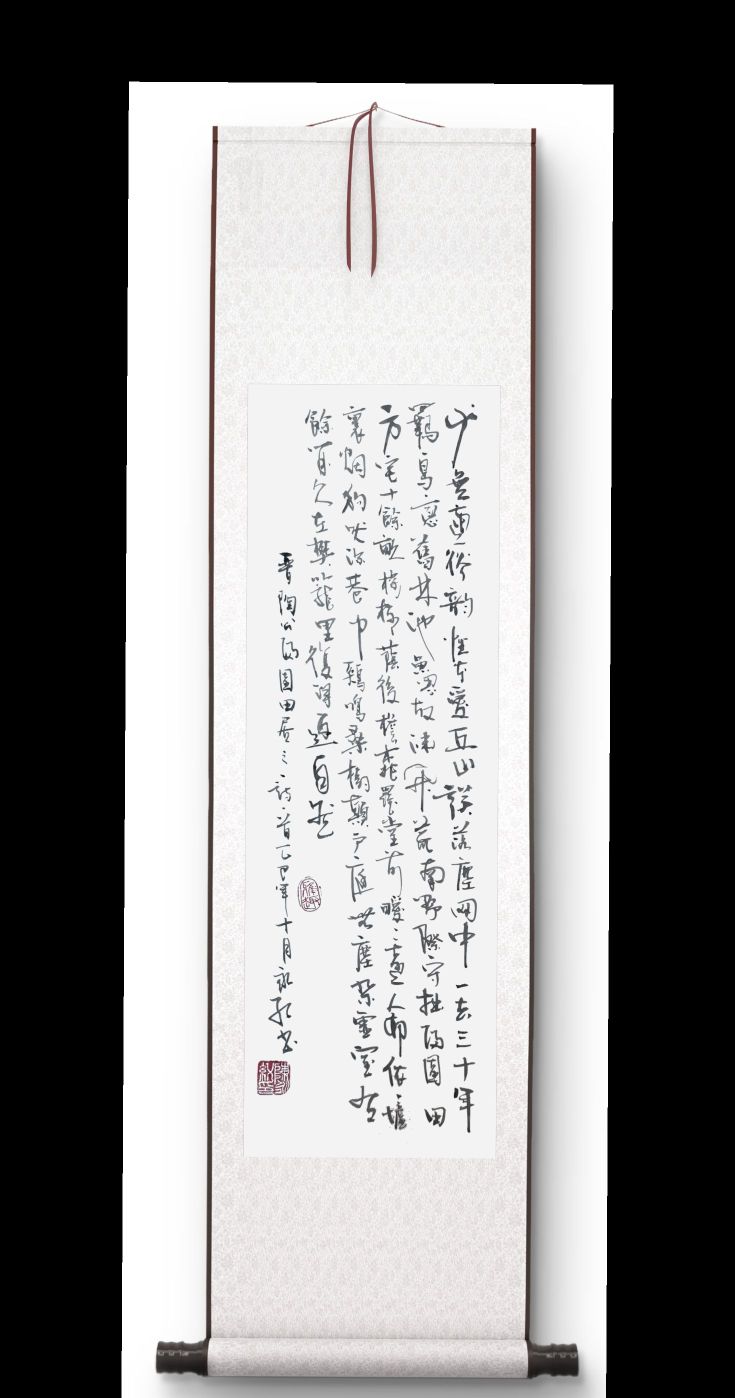 少無適俗韵性本愛丘山誤落塵网中一去三十年
羈鳥戀舊林池魚思故渊开荒南野際守拙歸園田
方宅十餘畝榆柳蔭後檐桃李羅堂前曖〻遠人村依〻墟
裏烟狗吠深巷中鷄鳴桑樹顛户庭無塵杂虛室有
餘閒久在樊籠里復得返自然
晋陶公歸園田居之一詩一首乙巳年十月永书